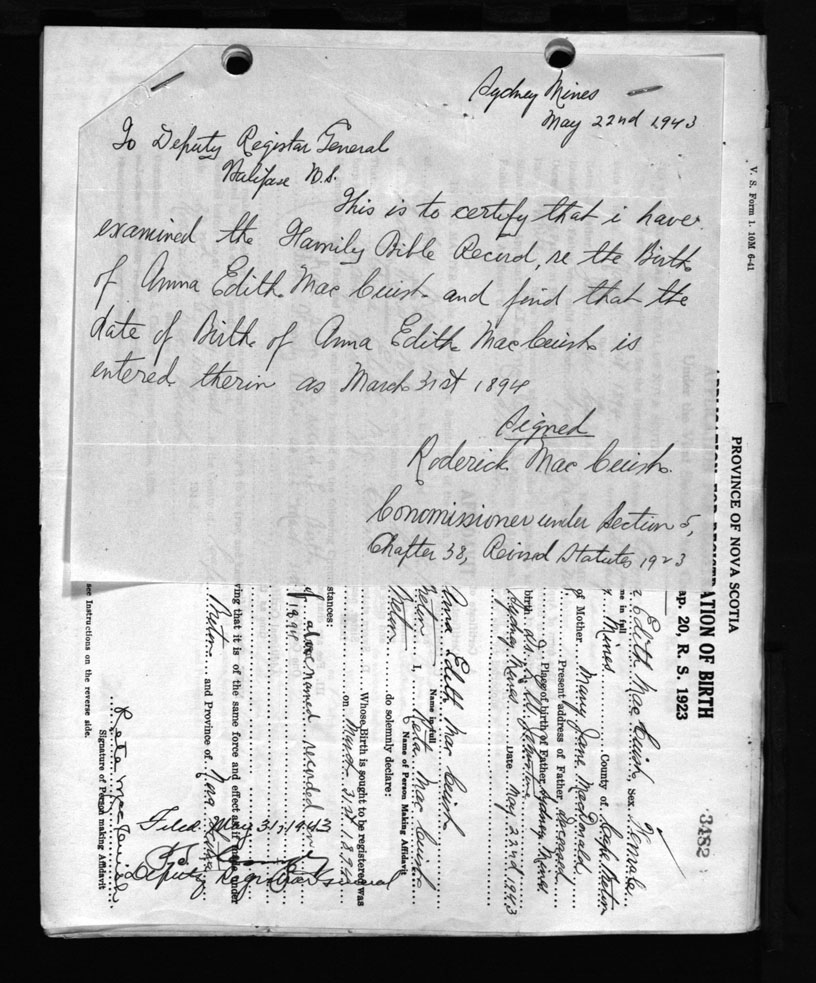 Sydney Mines
May 22nd 1943
To Deputy Registar General
Halifax N.S.
This is to certify that i have
examined the Family Bible Record, re the Birth
of Anna Edith MacCuish and find that the
date of Birth of Anna Edith MacCuish is
entered therin as March 31st 1894
Signed
Roderick MacCuish
Commissioner under Section 5,
Chapter 38, Revised Statutes 1923
V. S. Form 1. 10M 6-41
PROVINCE OF NOVA SCOTIA
ATION OF BIRTH
ap. 20, R. S. 1923
3482
Edith MacCuish Sex Female
me in full
Mines County of Cape Breton
of Mother Mary Jane MacDonald
Present address of Father Deceased
Place of birth of Father Sydney Mines
birth
Sydney Mines Date May 22nd 1943
Anna Edith MacCuish
Name in full
Breton I, Reta MacCuish
Name of Person Making Affidavit
Breton do solemnly declare:
Whose Birth is sought to be registered was
on March 31st 1894
stances:
of above named recorded
1894
ving that it is of the same force and effect as if made under
Breton and Province of Nova Scotia
Filed May 31, 1943
Deputy Registrar General
Reta MacCuish
Signature of Person making Affidavit
see Instructions on the reverse side.